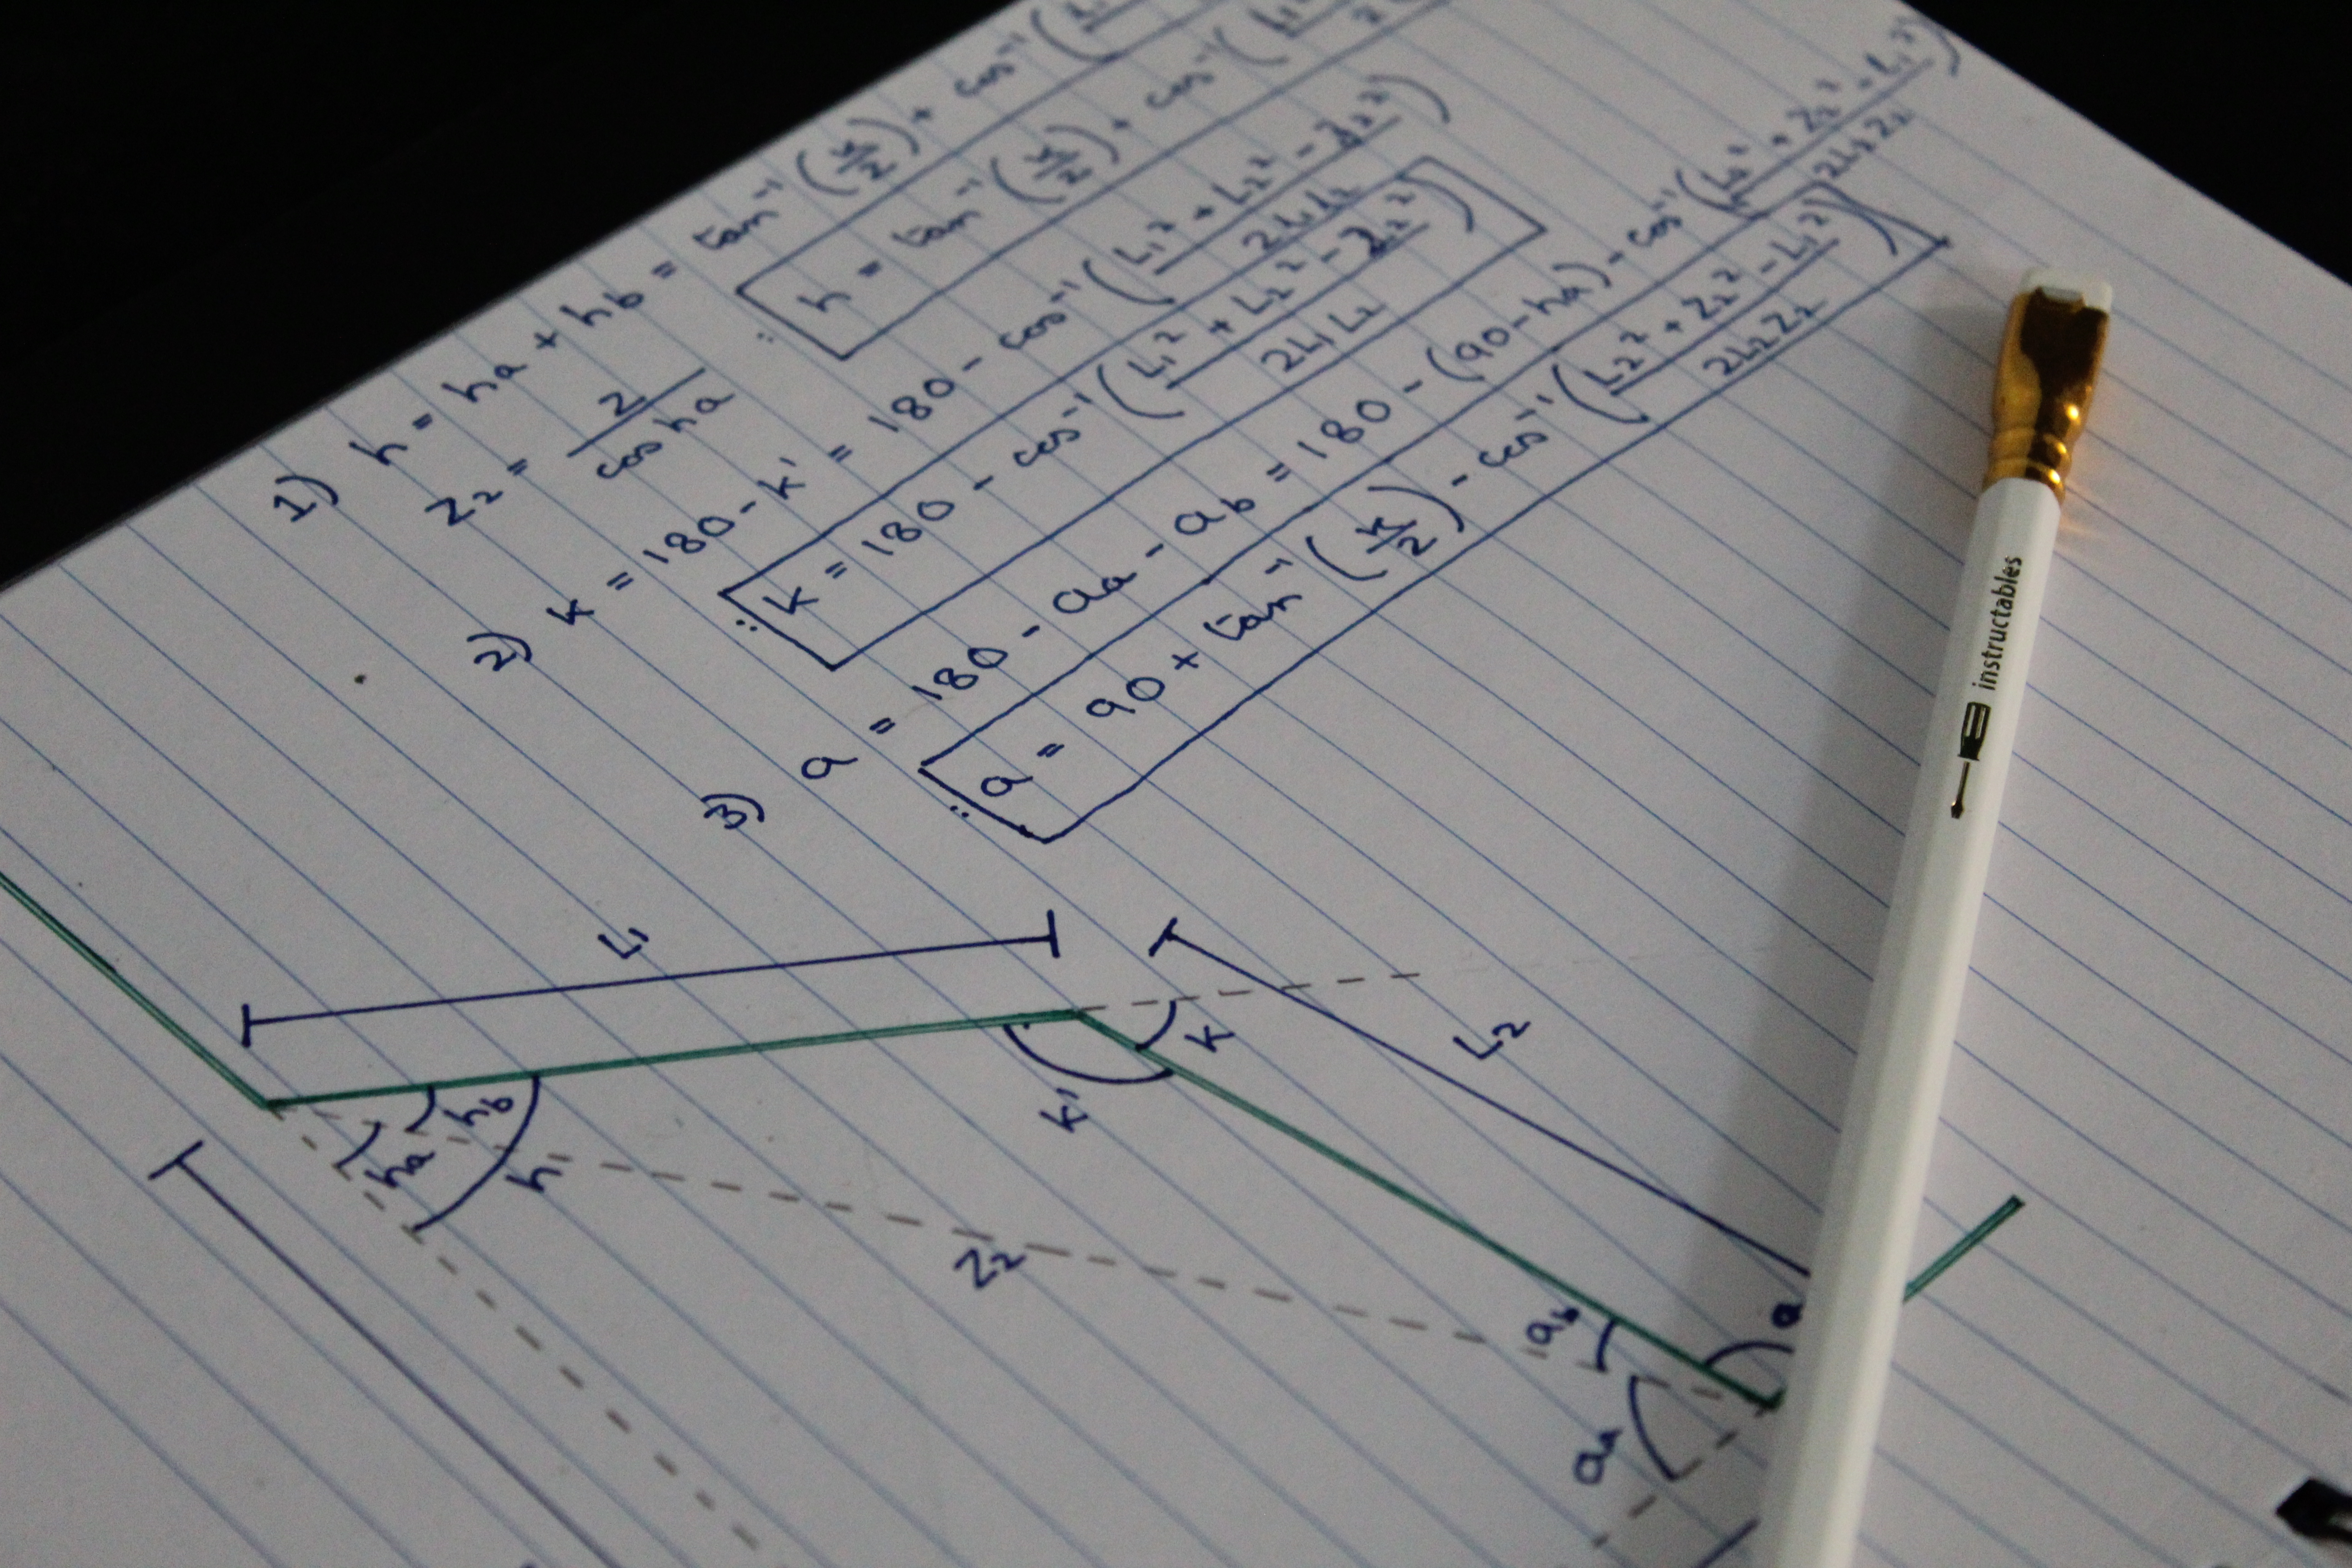 1) h = ha + hb = tan⁻¹(x/z) + cos⁻¹(
z₂ = z/cos ha
∴ h = tan⁻¹(x/z) + cos⁻¹(
2) k = 180 - k' = 180 - cos⁻¹((L₁² + L₂² - z₂²)/2L₁L₂)
∴ k = 180 - cos⁻¹((L₁² + L₂² - z₂²)/2L₁L₂)
3) a = 180 - aa - ab = 180 - (90 - ha) - cos⁻¹((L₂² + z₂² - L₁²)/2L₂z₂)
∴ a = 90 + tan⁻¹(x/z) - cos⁻¹((L₂² + z₂² - L₁²)/2L₂z₂)
L₁
L₂
k
k'
hb
ha
h
z₂
ab
a
aa
instructables